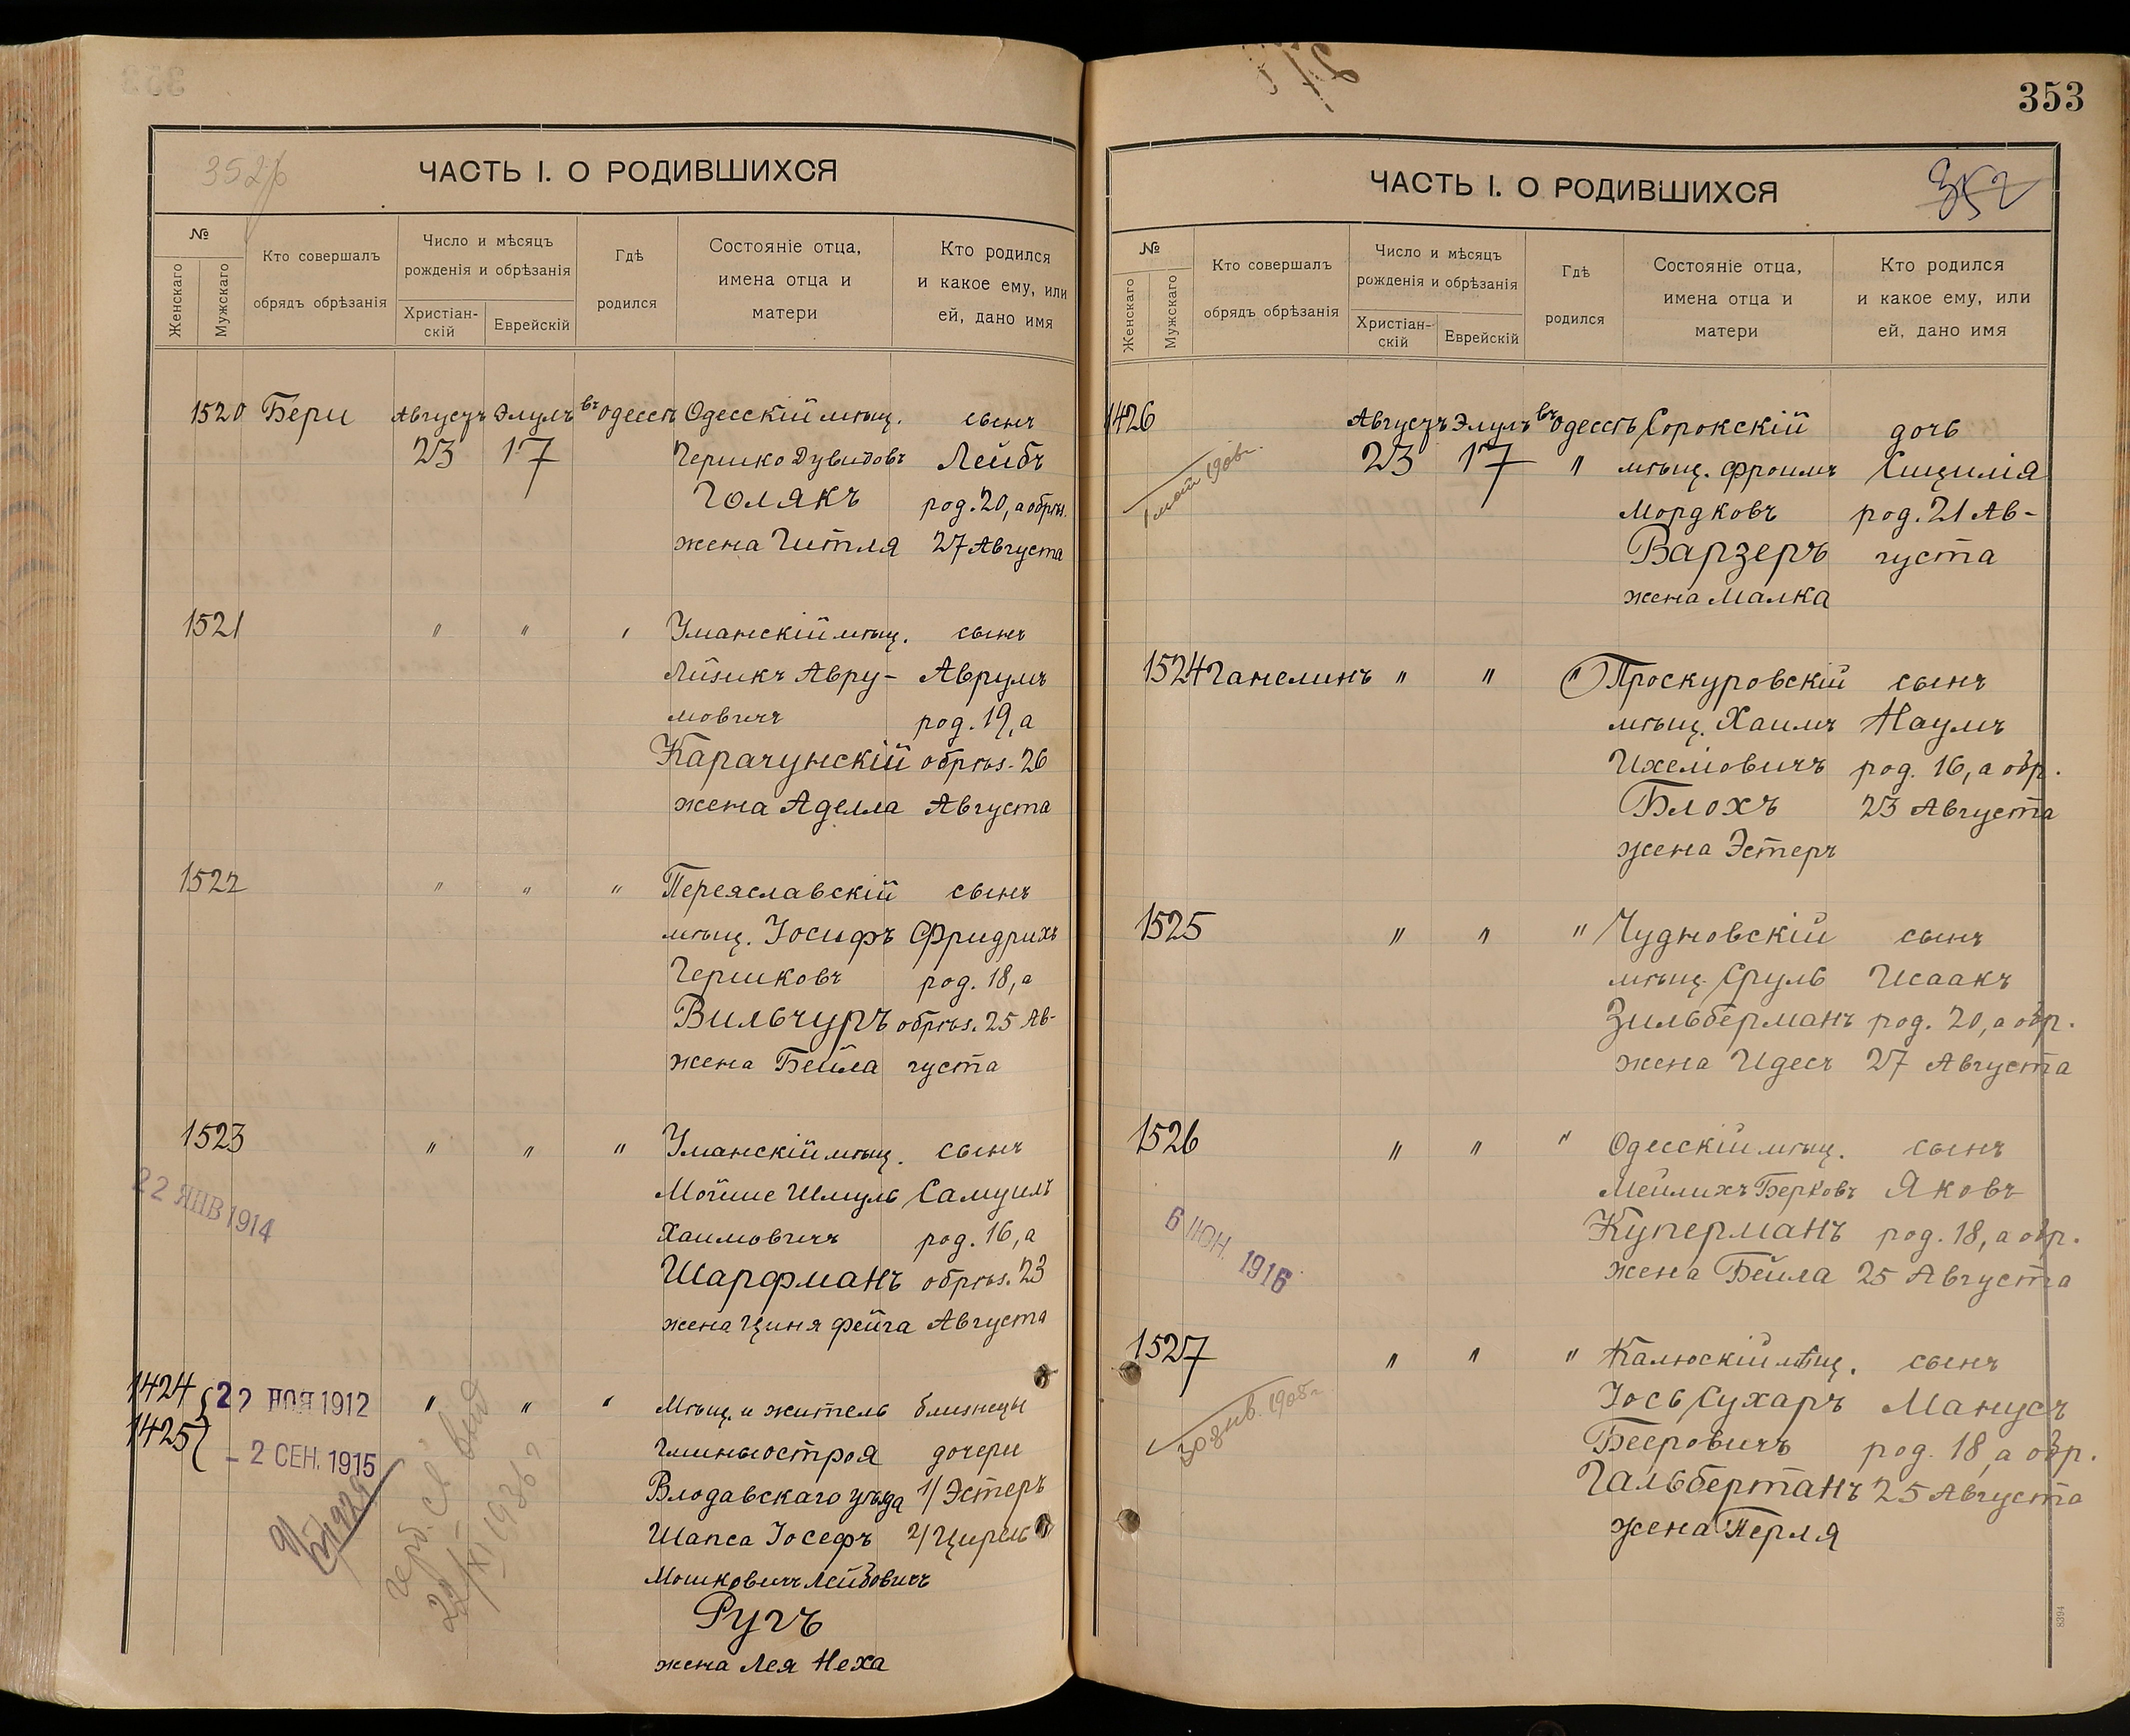 353
352
ЧАСТЬ I. О РОДИВШИХСЯ
№
Женскаго
Мужскаго
Кто совершалъ
обрядъ обрѣзанія
Число и мѣсяцъ
рожденія и обрѣзанія
Христіан-
скій
Еврейскій
Гдѣ
родился
Состояніе отца,
имена отца и
матери
Кто родился
и какое ему, или
ей, дано имя
1520 Бери Августъ Элулъ въ Одессѣ Одесскій мѣщ. сынъ
23 17 Гершко Дувидовъ Лейбъ
Голякъ род. 20, а обрѣз.
жена Гитля 27 Августа
1521 " " " Уманскій мѣщ. сынъ
Лейзикъ Авру- Аврумъ
мовичъ род. 19, а
Карачунскій обрѣз. 26
жена Аделла Августа
1522 " " " Переяславскій сынъ
мѣщ. Іосифъ Фридрихъ
Гершковъ род. 18, а
Вильчуръ обрѣз. 25 Ав-
жена Бейла густа
1523 " " " Уманскій мѣщ. сынъ
Мойше Шмуль Самуилъ
22 ЯНВ 1914
Хаимовичъ род. 16, а
Шарфманъ обрѣз. 23
жена Циня Фейга Августа
1424 22 НОЯ 1912 " " " Мѣщ. и житель близнецы
1425 - 2 СЕН. 1915 Гмины остроя дочери
Влодавскаго уѣзда 1/ Эстеръ
Шапса Іосефъ 2/ Цирель
Мошковичъ Лейбовичъ
22/XI 1936
Ругъ
жена Лея Неха
353
ЧАСТЬ I. О РОДИВШИХСЯ
352
№
Женскаго
Мужскаго
Кто совершалъ
обрядъ обрѣзанія
Число и мѣсяцъ
рожденія и обрѣзанія
Христіан-
скій
Еврейскій
Гдѣ
родился
Состояніе отца,
имена отца и
матери
Кто родился
и какое ему, или
ей, дано имя
1426 Августъ Элулъ въ Одессѣ Сорокскій дочь
23 17 " мѣщ. Фроимъ Сицилія
1 май 1906г.
Мордковъ род. 21 Ав-
Варзеръ густа
жена Малка
1524 Ганелинъ " " " Проскуровскій сынъ
мѣщ. Хаимъ Наумъ
Ихеловичъ род. 16, а обр.
Блохъ 23 Августа
жена Эстеръ
1525 " " " Чудновскій сынъ
мѣщ. Сруль Исаакъ
Зильберманъ род. 20, а обр.
жена Идесъ 27 Августа
1526 " " " Одесскій мѣщ. сынъ
Мейлихъ Берковъ Яковъ
6 ІЮН. 1916
Куперманъ род. 18, а обр.
жена Бейла 25 Августа
1527 " " " Калюскій мѣщ. сынъ
Іось Сухаръ Манусъ
30 янв. 1908г.
Бееровичъ род. 18, а обр.
Гальбертанъ 25 Августа
жена Перля
8394